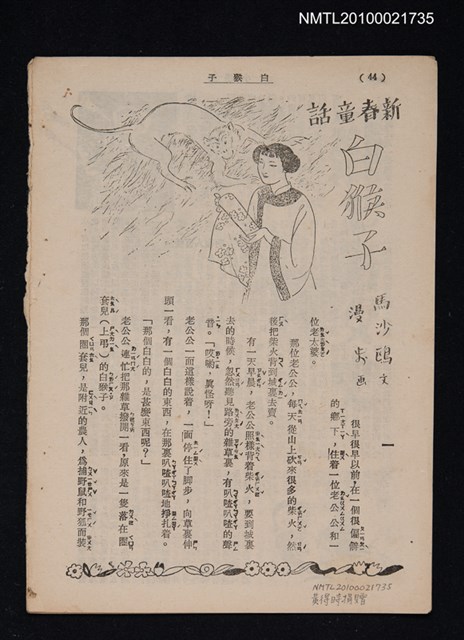 NMTL20100021735
白猴子
(44)
新春童話
白猴子
馬沙鷗 文
漫步 画
一
很早很早以前,在一個很偏僻
的鄉下,住着一位老公公和一
位老太婆。
那位老公公,每天從山上砍來很多的柴火,然
後把柴火背到城裏去賣。
有一天早晨,老公公照樣背着柴火,要到城裏
去的時候,忽然聽見路旁的雜草裏,有叭喳叭喳的聲
音。
「哎喲,眞怪呀!」
老公公一面這樣說着,一面停住了脚步,向草裏伸
頭一看,有一個白白的東西,在那裏叭喳叭喳地掙扎着。
「那個白白的,是甚麼東西呢?」
老公公連忙把那雜草撥開一看,原來是一隻落在圈
套兒(上弔)的白猴子。
那個圈套兒,是附近的農人,爲捕野鼠和野狐而裝
NMTL20100021735